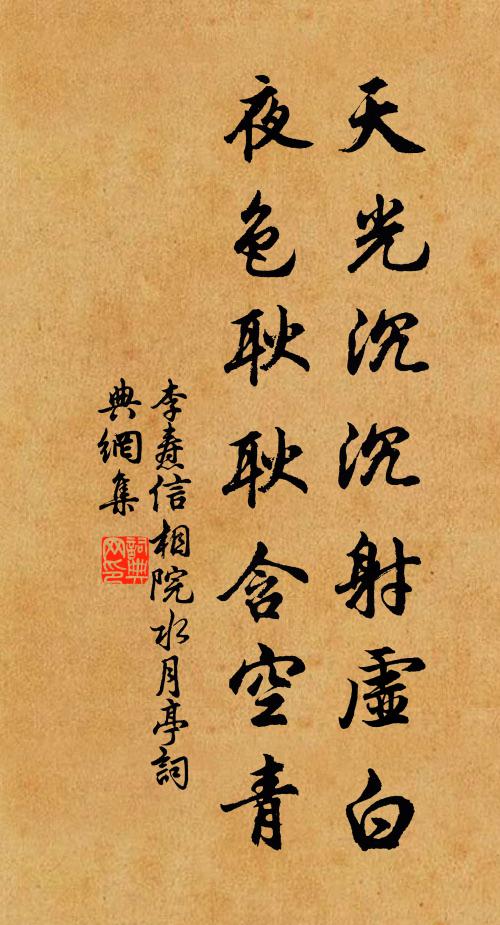 天光沉沉射虛白
夜色耿耿含空青
李燾信相院水月亭詞
典網集
詞典
網印